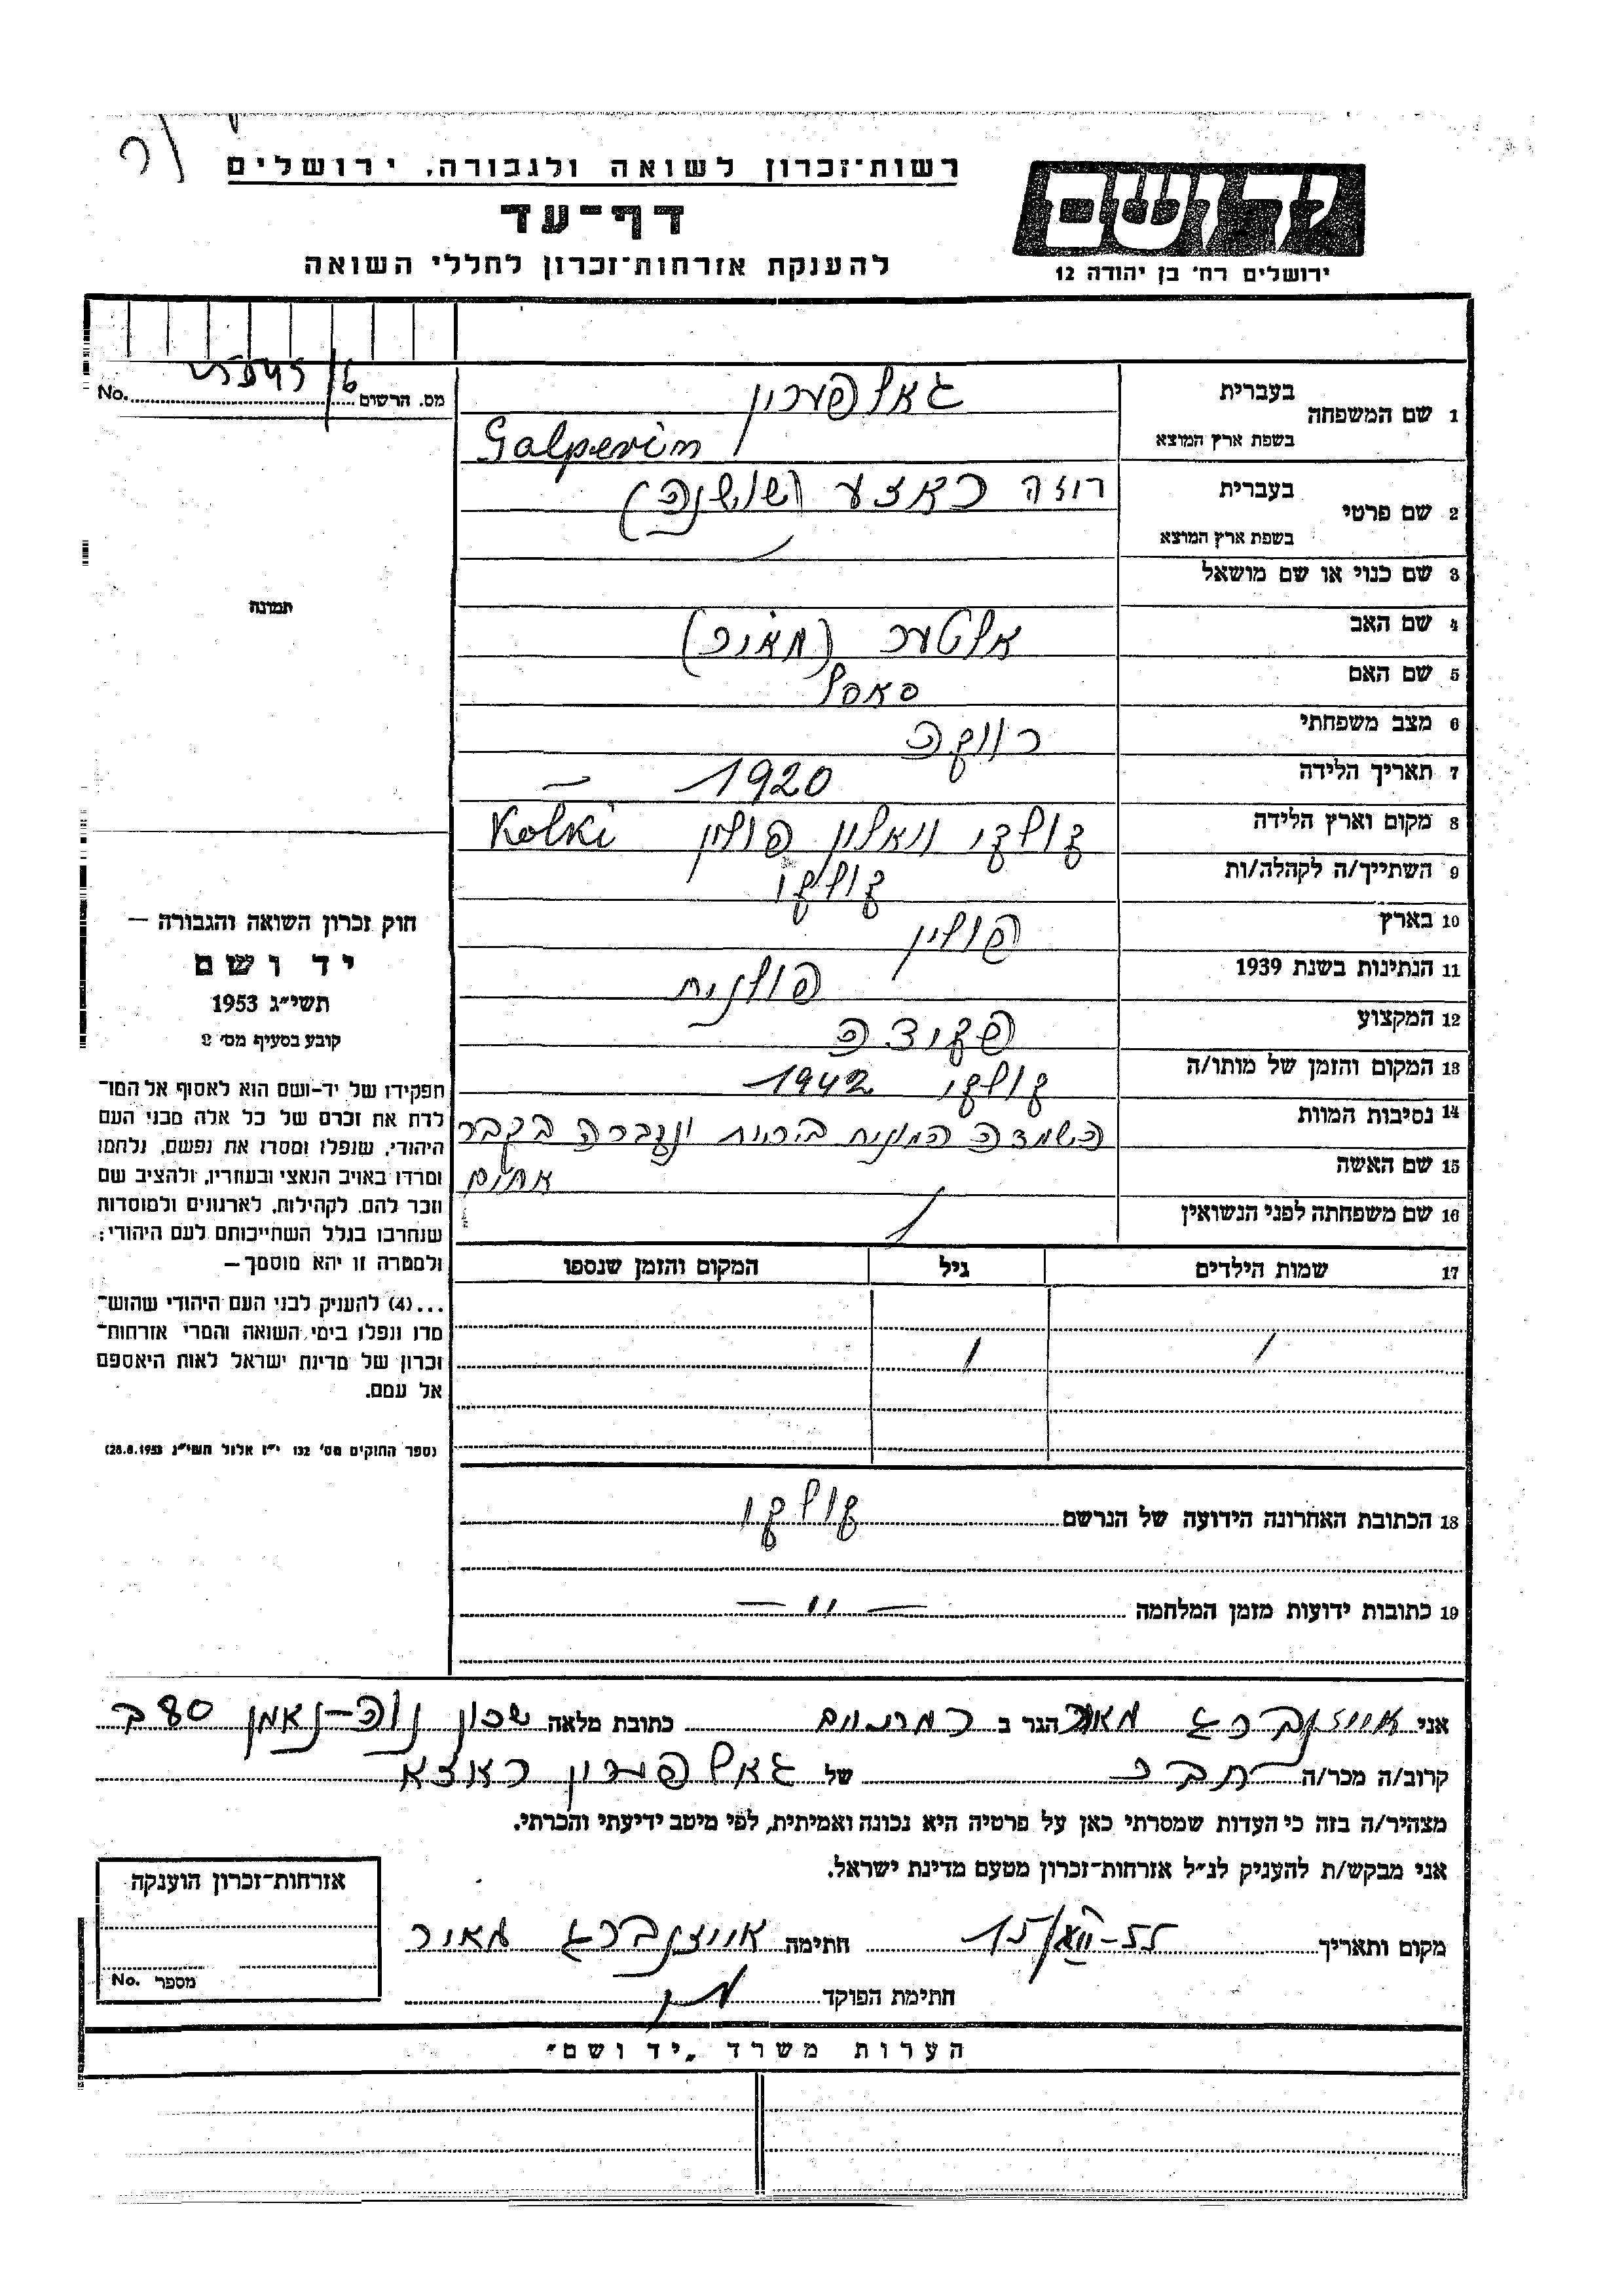 רשות־זכרון לשואה ולגבורה, ירושלים
דף־עד
להענקת אזרחות־זכרון לחללי השואה
ידושם
ירושלים רח׳ בן יהודה 12
מס. הרשום No.
1 שם המשפחה בעברית גאלפערין
בשפת ארץ המוצא Galperin
2 שם פרטי בעברית רוזה ראזע (שושנה)
בשפת ארץ המוצא
3 שם כנוי או שם מושאל
4 שם האב אלטער (מאיר)
5 שם האם
6 מצב משפחתי רווקה
7 תאריך הלידה 1920
8 מקום וארץ הלידה קולקי וואלין פולין Kolki
9 השתייך/ה לקהלה/ות קולקי
10 בארץ פולין
11 הנתינות בשנת 1939 פולנית
12 המקצוע פקידה
13 המקום והזמן של מותו/ה קולקי 1942
14 נסיבות המוות השמדה המונית ביריות ונקברה בקבר
אחים
15 שם האשה
16 שם משפחתה לפני הנשואין
17 שמות הילדים גיל המקום והזמן שנספו
18 הכתובת האחרונה הידועה של הנרשם קולקי
19 כתובות ידועות מזמן המלחמה — " —
תמונה
חוק זכרון השואה והגבורה —
יד ושם
תשי״ג 1953
קובע בסעיף מס׳ 2
תפקידו של יד-ושם הוא לאסוף אל המו־
לדת את זכרם של כל אלה מבני העם
היהודי, שנפלו ומסרו את נפשם, נלחמו
ומרדו באויב הנאצי ובעוזריו, ולהציב שם
וזכר להם, לקהילות, לארגונים ולמוסדות
שנחרבו בגלל השתייכותם לעם היהודי;
ולמטרה זו יהא מוסמך—
...(4) להעניק לבני העם היהודי שהוש־
מדו ונפלו בימי השואה והמרי אזרחות־
זכרון של מדינת ישראל לאות היאספם
אל עמם.
(ספר החוקים מס׳ 132 י״ז אלול תשי״ג 28.8.1953)
אני אייזנברג מאיר הגר ב כתובת מלאה שכון נוה-נאמן 80 ב
קרוב/ה מכר/ה חבר של גאלפערין ראזא
מצהיר/ה בזה כי העדות שמסרתי כאן על פרטיה היא נכונה ואמיתית, לפי מיטב ידיעתי והכרתי.
אני מבקש/ת להעניק לנ״ל אזרחות-זכרון מטעם מדינת ישראל.
מקום ותאריך חתימה אייזנברג מאיר
חתימת הפוקד
אזרחות־זכרון הוענקה
מספר No.
הערות משרד „יד ושם״